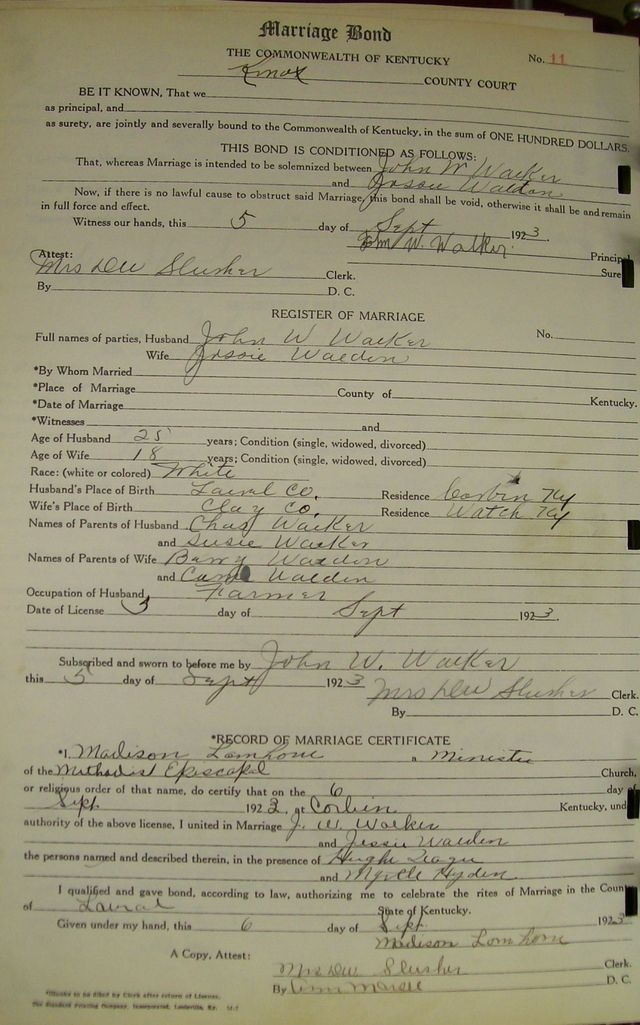 Marriage Bond
THE COMMONWEALTH OF KENTUCKY No. 11
Knox COUNTY COURT
BE IT KNOWN, That we
as principal, and
as surety, are jointly and severally bound to the Commonwealth of Kentucky, in the sum of ONE HUNDRED DOLLARS.
THIS BOND IS CONDITIONED AS FOLLOWS:
That, whereas Marriage is intended to be solemnized between John W Walker
and Jossie Waldon
Now, if there is no lawful cause to obstruct said Marriage, this bond shall be void, otherwise it shall be and remain
in full force and effect.
Witness our hands, this 5 day of Sept 1923.
John W. Walker Principal
Attest: Sure
Mrs DW Slusher Clerk.
By D. C.
REGISTER OF MARRIAGE
Full names of parties, Husband John W Walker No.
Wife Jossie Walden
*By Whom Married
*Place of Marriage County of Kentucky.
*Date of Marriage
*Witnesses and
Age of Husband 25 years; Condition (single, widowed, divorced)
Age of Wife 18 years; Condition (single, widowed, divorced)
Race: (white or colored) White
Husband's Place of Birth Laurel Co. Residence Corbin Ky
Wife's Place of Birth Clay Co. Residence Watch Ky
Names of Parents of Husband Chas Walker
and Susie Walker
Names of Parents of Wife Walden
and Walden
Occupation of Husband Farmer
Date of License 5 day of Sept 1923.
Subscribed and sworn to before me by John W. Walker
this 5 day of Sept 1923 Mrs DW Slusher Clerk.
By D. C.
*RECORD OF MARRIAGE CERTIFICATE
*I, Madison a Minister
of the Methodist Episcopal Church,
or religious order of that name, do certify that on the 6 day of
Sept. 1923, at Corbin Kentucky, und
authority of the above license, I united in Marriage J. W. Walker
and Jessie Walden
the persons named and described therein, in the presence of Hugh
and Myrtle Hyden
I qualified and gave bond, according to law, authorizing me to celebrate the rites of Marriage in the Coun
of Laurel State of Kentucky.
Given under my hand, this 6 day of Sept. 1923
Madison
A Copy, Attest: Mrs DW Slusher Clerk.
By D. C.
*Blanks to be filled by Clerk after return of License.
The Standard Printing Company, Incorporated, Louisville, Ky.